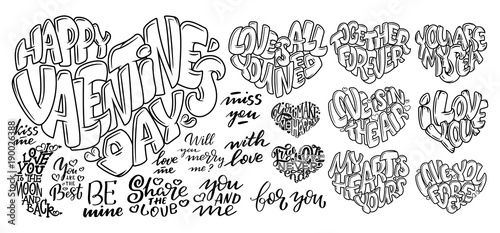 HAPPY
VALENTINE'S
DAY
kiss
me
I
LOVE
YOU
TO THE
MOON AND
AND
BACK
You
ARE THE
Best
BE
mine
love
me
Share
THE
LOVE
Will
you
merry
me?
YOU
AND
me
miss
you
with
love
for you
LOVE IS ALL
YOU NEED
TOGETHER
FOREVER
YOU ARE
MY
LOVE IS IN
THE AIR
I LOVE
YOU
MY HEART IS
YOURS
LOVE YOU
FOREVER
190026388